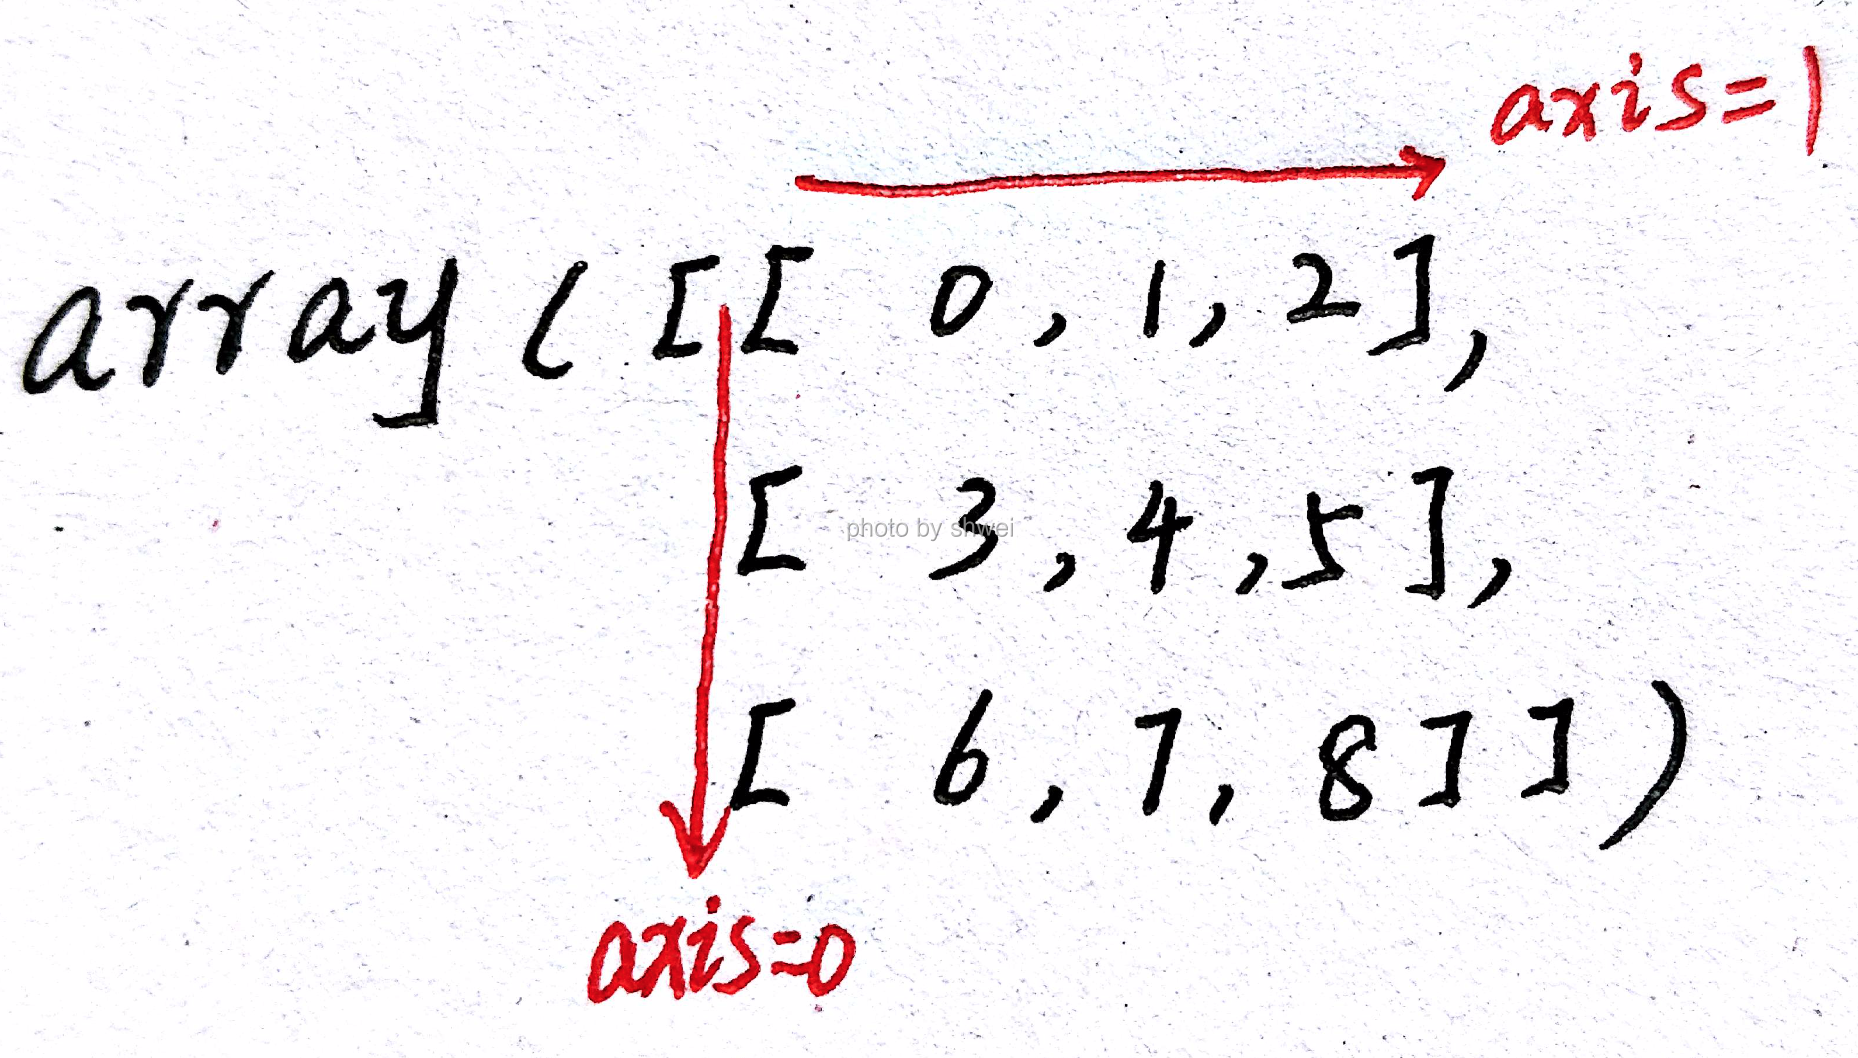 axis=1
array([[0,1,2],
[3,4,5],
photo by shwei
[6,7,8]])
axis=0